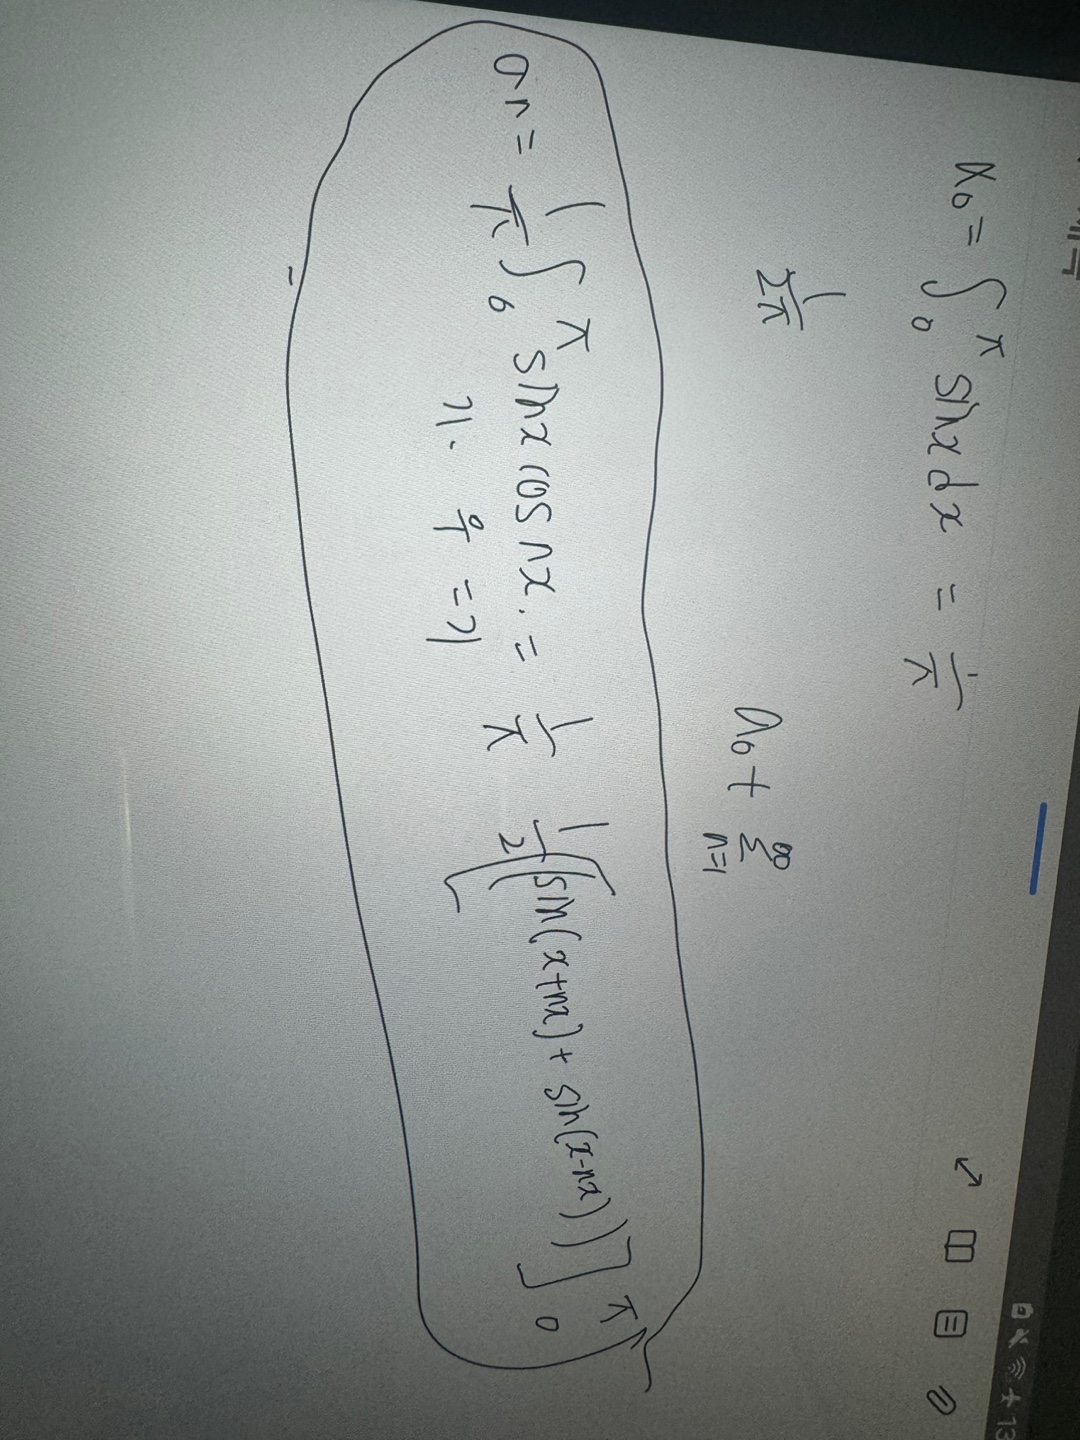 a₀ = ∫₀^π sinx dx = 1/π
1/2π
a₀ + Σ_{n=1}^∞
an = 1/π ∫₀^π sinx cos nx. = 1/π [1/2 (sin(x+nx) + sin(x-nx))]₀^π